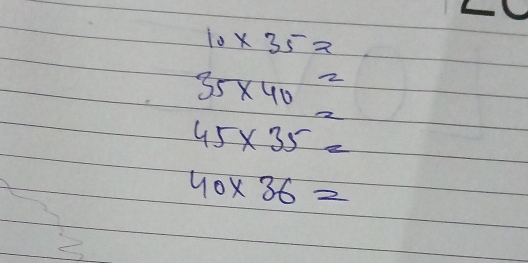 10 x 35 =
35 x 40 =
45 x 35 =
40 x 36 =